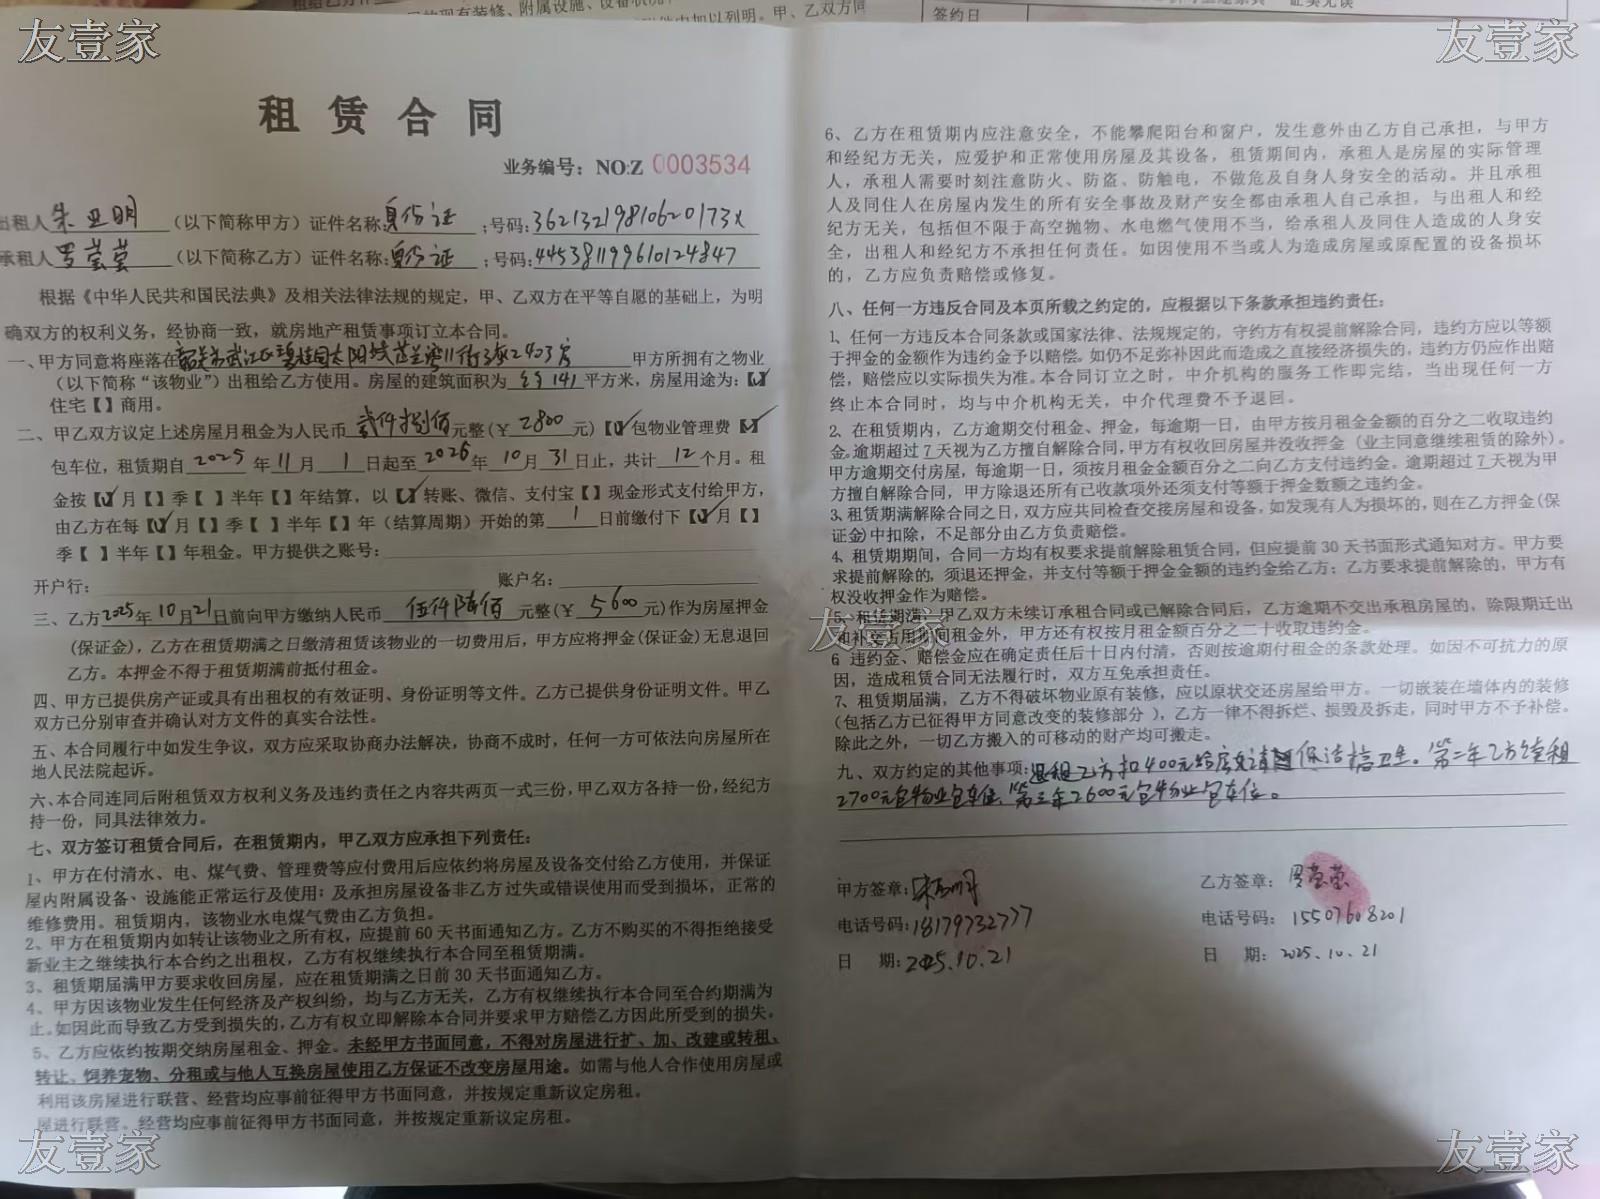 友壹家
友壹家
签约日
租赁合同
业务编号：NO:Z 0003534
出租人朱亚明（以下简称甲方）证件名称身份证；号码:36213219810620173X
承租人罗莹莹（以下简称乙方）证件名称:身份证；号码:445381199610124847
根据《中华人民共和国民法典》及相关法律法规的规定，甲、乙双方在平等自愿的基础上，为明
确双方的权利义务，经协商一致，就房地产租赁事项订立本合同。
一、甲方同意将座落在韶关市武江区碧桂园太阳城芷兰湾11街3座2403房 甲方所拥有之物业
（以下简称“该物业”）出租给乙方使用。房屋的建筑面积为 141平方米，房屋用途为：【✓】
住宅【 】商用。
二、甲乙双方议定上述房屋月租金为人民币 贰仟捌佰元整(￥2800元)【✓】包物业管理费【✓】
包车位，租赁期自2025年11月1日起至2026年10月31日止，共计12个月。租
金按【✓】月【 】季【 】半年【 】年结算，以【✓】转账、微信、支付宝【 】现金形式支付给甲方，
由乙方在每【✓】月【 】季【 】半年【 】年（结算周期）开始的第1日前缴付下【✓】月【 】
季【 】半年【 】年租金。甲方提供之账号：
开户行： 账户名：
三、乙方2025年10月21日前向甲方缴纳人民币 伍仟陆佰 元整(￥5600元)作为房屋押金
(保证金)，乙方在租赁期满之日缴清租赁该物业的一切费用后，甲方应将押金(保证金)无息退回
乙方。本押金不得于租赁期满前抵付租金。
四、甲方已提供房产证或具有出租权的有效证明、身份证明等文件。乙方已提供身份证明文件。甲乙
双方已分别审查并确认对方文件的真实合法性。
五、本合同履行中如发生争议，双方应采取协商办法解决，协商不成时，任何一方可依法向房屋所在
地人民法院起诉。
六、本合同连同后附租赁双方权利义务及违约责任之内容共两页一式三份，甲乙双方各持一份，经纪方
持一份，同具法律效力。
七、双方签订租赁合同后，在租赁期内，甲乙双方应承担下列责任：
1、甲方在付清水、电、煤气费、管理费等应付费用后应依约将房屋及设备交付给乙方使用，并保证
屋内附属设备、设施能正常运行及使用；及承担房屋设备非乙方过失或错误使用而受到损坏，正常的
维修费用。租赁期内，该物业水电煤气费由乙方负担。
2、甲方在租赁期内如转让该物业之所有权，应提前60天书面通知乙方。乙方不购买的不得拒绝接受
新业主之继续执行本合约之出租权，乙方有权继续执行本合同至租赁期满。
3、租赁期届满甲方要求收回房屋，应在租赁期满之日前30天书面通知乙方。
4、甲方因该物业发生任何经济及产权纠纷，均与乙方无关，乙方有权继续执行本合同至合约期满为
止。如因此而导致乙方受到损失的，乙方有权立即解除本合同并要求甲方赔偿乙方因此所受到的损失。
5、乙方应依约按期交纳房屋租金、押金。未经甲方书面同意，不得对房屋进行扩、加、改建或转租、
转让、饲养宠物、分租或与他人互换房屋使用乙方保证不改变房屋用途。如需与他人合作使用房屋或
利用该房屋进行联营、经营均应事前征得甲方书面同意，并按规定重新议定房租。
屋进行联营。经营均应事前征得甲方书面同意，并按规定重新议定房租。
6、乙方在租赁期内应注意安全，不能攀爬阳台和窗户，发生意外由乙方自己承担，与甲方
和经纪方无关，应爱护和正常使用房屋及其设备，租赁期间内，承租人是房屋的实际管理
人，承租人需要时刻注意防火、防盗、防触电，不做危及自身人身安全的活动。并且承租
人及同住人在房屋内发生的所有安全事故及财产安全都由承租人自己承担，与出租人和经
纪方无关，包括但不限于高空抛物、水电燃气使用不当，给承租人及同住人造成的人身安
全，出租人和经纪方不承担任何责任。如因使用不当或人为造成房屋或原配置的设备损坏
的，乙方应负责赔偿或修复。
八、任何一方违反合同及本页所载之约定的，应根据以下条款承担违约责任：
1、任何一方违反本合同条款或国家法律、法规规定的，守约方有权提前解除合同，违约方应以等额
于押金的金额作为违约金予以赔偿。如仍不足弥补因此而造成之直接经济损失的，违约方仍应作出赔
偿，赔偿应以实际损失为准。本合同订立之时，中介机构的服务工作即完结，当出现任何一方
终止本合同时，均与中介机构无关，中介代理费不予退回。
2、在租赁期内，乙方逾期交付租金、押金，每逾期一日，由甲方按月租金金额的百分之二收取违约
金。逾期超过7天视为乙方擅自解除合同，甲方有权收回房屋并没收押金（业主同意继续租赁的除外）。
甲方逾期交付房屋，每逾期一日，须按月租金金额百分之二向乙方支付违约金。逾期超过7天视为甲
方擅自解除合同，甲方除退还所有已收款项外还须支付等额于押金数额之违约金。
3、租赁期满解除合同之日，双方应共同检查交接房屋和设备，如发现有人为损坏的，则在乙方押金（保
证金）中扣除，不足部分由乙方负责赔偿。
4、租赁期期间，合同一方均有权要求提前解除租赁合同，但应提前30天书面形式通知对方。甲方要
求提前解除的，须退还押金，并支付等额于押金金额的违约金给乙方；乙方要求提前解除的，甲方有
权没收押金作为赔偿。
5、租赁期满，甲乙双方未续订承租合同或已解除合同后，乙方逾期不交出承租房屋的，除限期迁出
和补交占用期间租金外，甲方还有权按月租金额百分之二十收取违约金。
友壹家
6 违约金、赔偿金应在确定责任后十日内付清，否则按逾期付租金的条款处理。如因不可抗力的原
因，造成租赁合同无法履行时，双方互免承担责任。
7、租赁期届满，乙方不得破坏物业原有装修，应以原状交还房屋给甲方。一切嵌装在墙体内的装修
（包括乙方已征得甲方同意改变的装修部分 ），乙方一律不得拆烂、损毁及拆走，同时甲方不予补偿。
除此之外，一切乙方搬入的可移动的财产均可搬走。
九、双方约定的其他事项：退租乙方扣400元给房东请保洁搞卫生。第二年乙方续租
2700元包物业包车位、第三年2600元包物业包车位。
甲方签章：朱亚明
电话号码：18179732777
日 期：2025.10.21
乙方签章：罗莹莹
电话号码：15507608201
日 期：2025.10.21
友壹家
友壹家